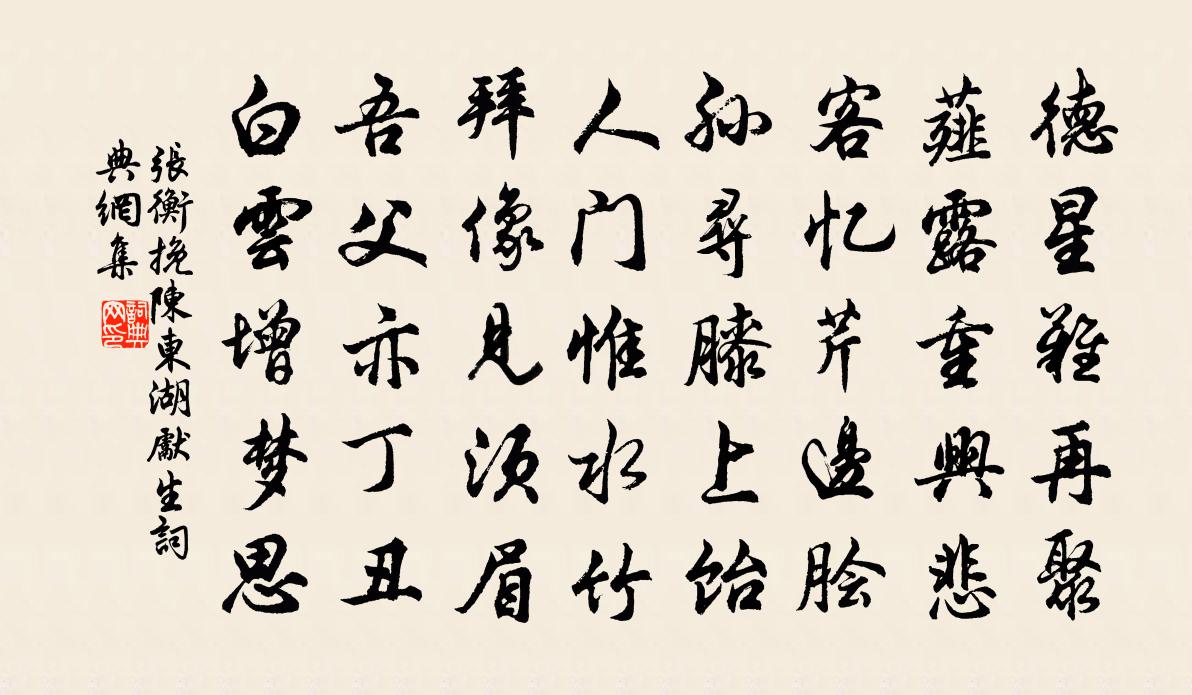 德星難再聚
薤露重興悲
客忆芹邊脍
孙尋膝上饴
人门惟水竹
拜像見须眉
吾父亦丁丑
白雲增梦思
張衡挽陳東湖獻生詞
典網集
詞典
网印